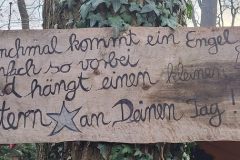 nchmal kommt ein Engel
nfach so vorbei
d hängt einen kleinen
tern an Deinen Tag!